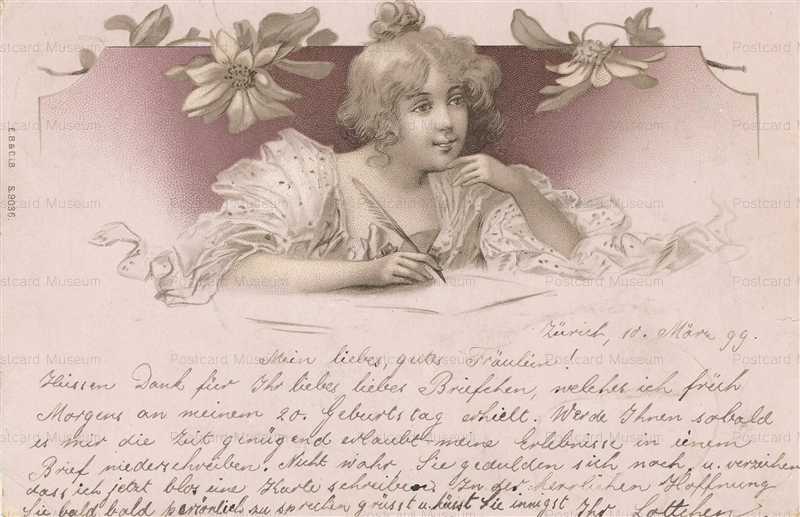 E.B.& C.i.B. S. 9036.
Zürich, 10. März 99.
Mein liebes, gutes Fräulein.
Heissen Dank für Ihr liebes liebes Briefchen, welches ich früh
Morgens an meinem 20. Geburtstag erhielt. Werde Ihnen sobald
es mir die Zeit genügend erlaubt meine Erlebnisse in einem
Brief niederschreiben. Nicht wahr, Sie gedulden sich noch, u. verzeihen
dass ich jetzt blos eine Karte schreiben. In der herrlichen Hoffnung
Sie bald bald persönlich zu sprechen grüsst u. küsst Sie innigst Ihr Lottchen